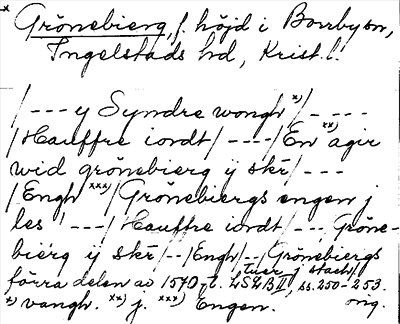 * Grönebierg, f. höjd i Borrby sn,
Ingelstads hd, Krist. l.
/ --- y Syndre wongh *) / - ---
/ Hauffre iordt / ---- / En **) agir
wid grönebierg ÿ skr̄ / ---
/ Engh ***) / Grönebiergs engen j
les --- / Hauffre iordt / --- Gröne-
bierg ÿ skr̄ / -- / Engh / -- / Grönebiergs
tuer j stach /
förra delen av 1570-t. LSLB II, ss. 250-253.
*) vangh. **) j. ***) Engen. orig.